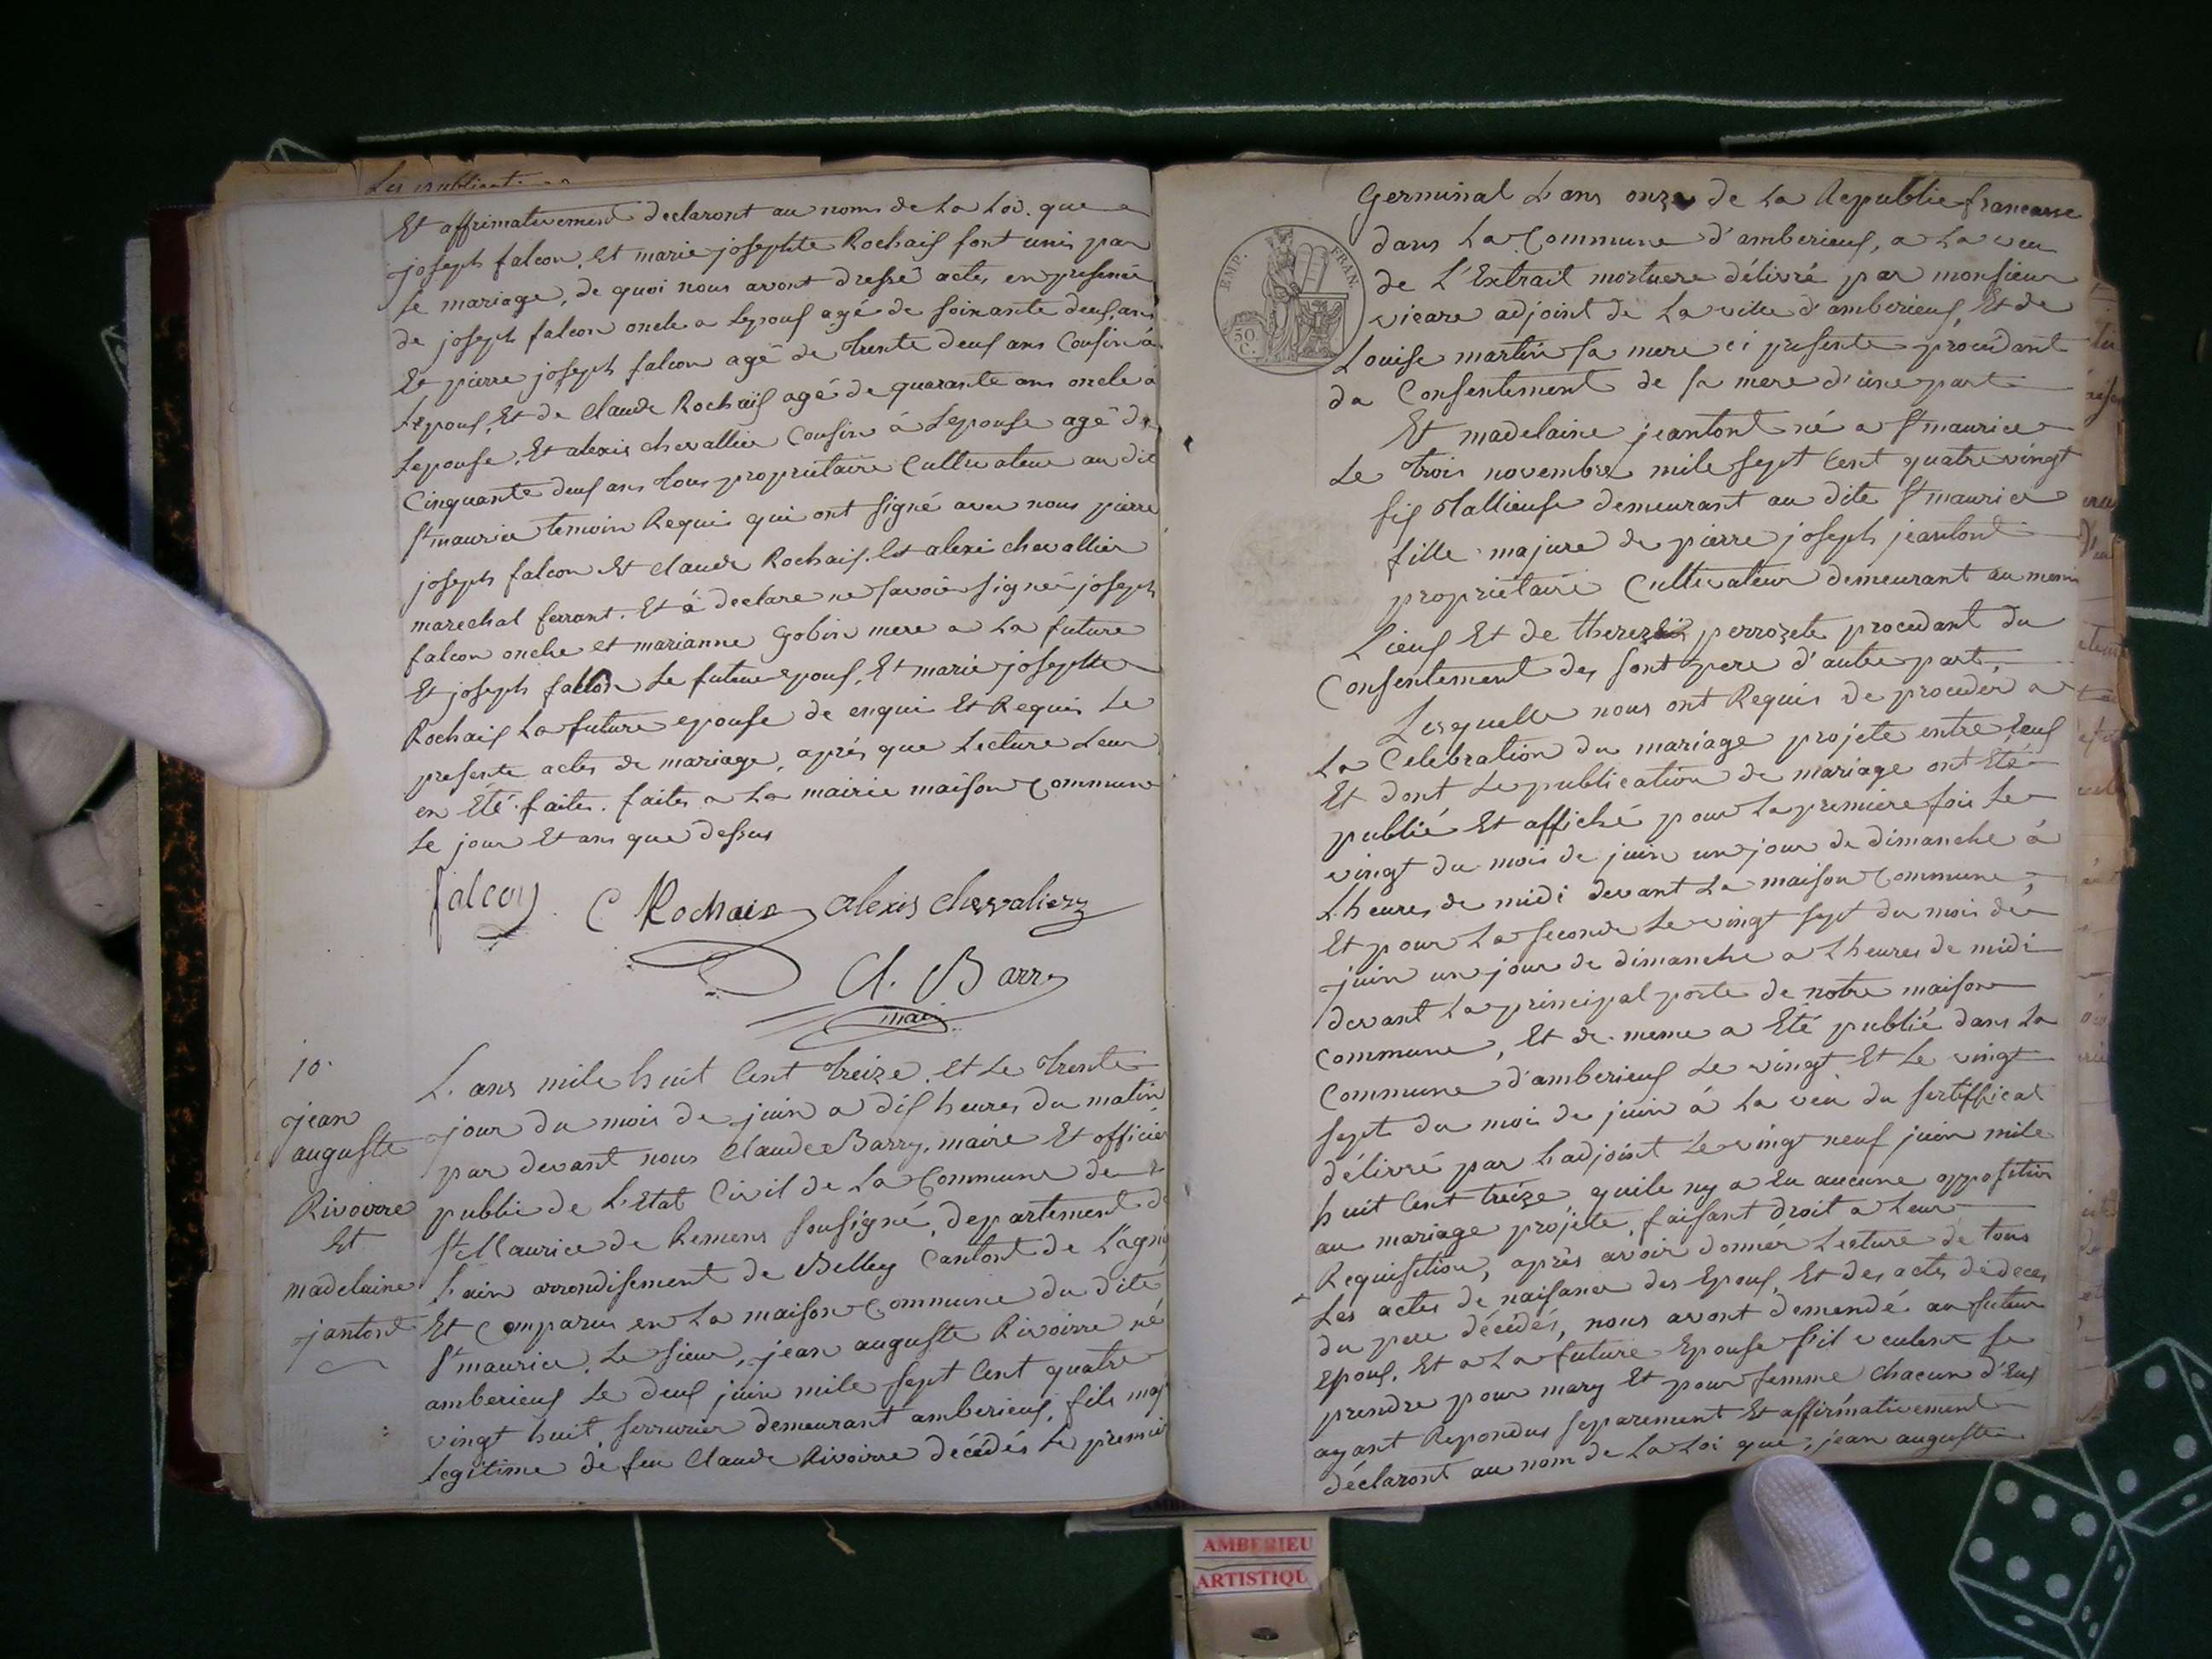 Les publicat
Et affirmativement declaront au nom de La Loi. que
joseph falcon. et marie josephte Rochais sont unis par
Le mariage, de quoi nous avont dressé actes en presence
de joseph falcon oncle a Lepoux agé de soixante deux ans
Et pierre joseph falcon agé de trente deux ans Cousin à
Lépoux, Et de Claude Rochaix agé de quarante ans oncle à
Lepouse. Et alexis chevallier Cousin à Lepouse agé de
Cinquante deux ans tous proprietaire Cultivateur au dit
St maurice temoin Requis qui ont signé avec nous pierre
joseph falcon Et claude Rochaix. Et alexi chevallier
marechal ferrant. Et à declare ne savoir signé joseph
falcon oncle et marianne gobin mere a La future
Et joseph falcon Le futeur epoux, Et marie josephte
Rochaix La future epouse de enqui Et Requis Le
presente actes de mariage, après que Lecture Leur
en Eté faites. faites a La mairie maison Commune
Le jour Et ans que dessus
falcon C Rochais alexis chevalier
Cl. Barry
mair
10.
jean
auguste
Rivoirre
Et
madelaine
jantont
L'ans mile huit Cent treize. et Le trente
jour du mois de juin a dix heures du matin
par devant nous Claude Barry, maire Et officier
public de L'Etat Civil de La Commune de
St Maurice de Remens sousigné, departement de
L'ain arrondisement de Belley Cantont de Lagni
Et Comparus en La maison Commune du dite
St maurice. Le sieur, jean auguste Rivoirre né
amberieux Le deux juin mile sept Cent quatre
vingt huit, serrurier demeurant amberieux, fils maj
Legitime de feu Claude Rivoirre décédés Le premier
Germinal L'ans onze de La Republic francaise
dans La Commune d'amberieux, a La veu
de L'Extrait mortuere délivré par monsieur
vicare adjoint de La ville d'amberieux, Et de
Louise martin sa mere ci presente procédant
da Consentement de sa mere d'une part
Et madelaine jeantont né a St maurice
Le trois novembre mile sept Cent quatre vingt
six tallieuse demeurant au dite St maurice
fille majure de pierre joseph jeantont
proprietaire Cultivateur demeurant au meme
Lieux Et de therez perrozete procedant du
Consentement des sont pere d'autre part,
Lesquelle nous ont Requis de procedér a
La Celebration du mariage projete entre Eux
Et dont Le publication de mariage ont Eté
publié Et affiché pour La premiere fois Le
vingt du mois de juin un jour de dimanche à
L'heures de midi devant La maison Commune,
Et pour La seconde Le vingt sept du mois de
juin un jour de dimanche a L'heures de midi
devant La principal porte de notre maison
Commune, Et de meme a Eté publié dans La
Commune d'amberieux Le vingt Et Le vingt
sept du moi de juin à La veu du sertifficat
délivré par L'adjoint Le vingt neuf juin mile
huit Cent treize quile ny a Eu aucune opposition
au mariage projete, faisant droit a Leur
Requisition, après avoir donnér Lecture de tous
Les actes de naisance des Epoux, Et des actes de deces
du pere décédés, nous avont demendé au futeur
Epoux, Et a La future Epouse s'il veulent se
prendre pour mary Et pour femme chacun d'Eux
ayant Repondus separement Et affirmativement
declaront au nom de La Loi que, jean auguste
EMP. FRAN.
50
C.
AMBERIEU
ARTISTIQU